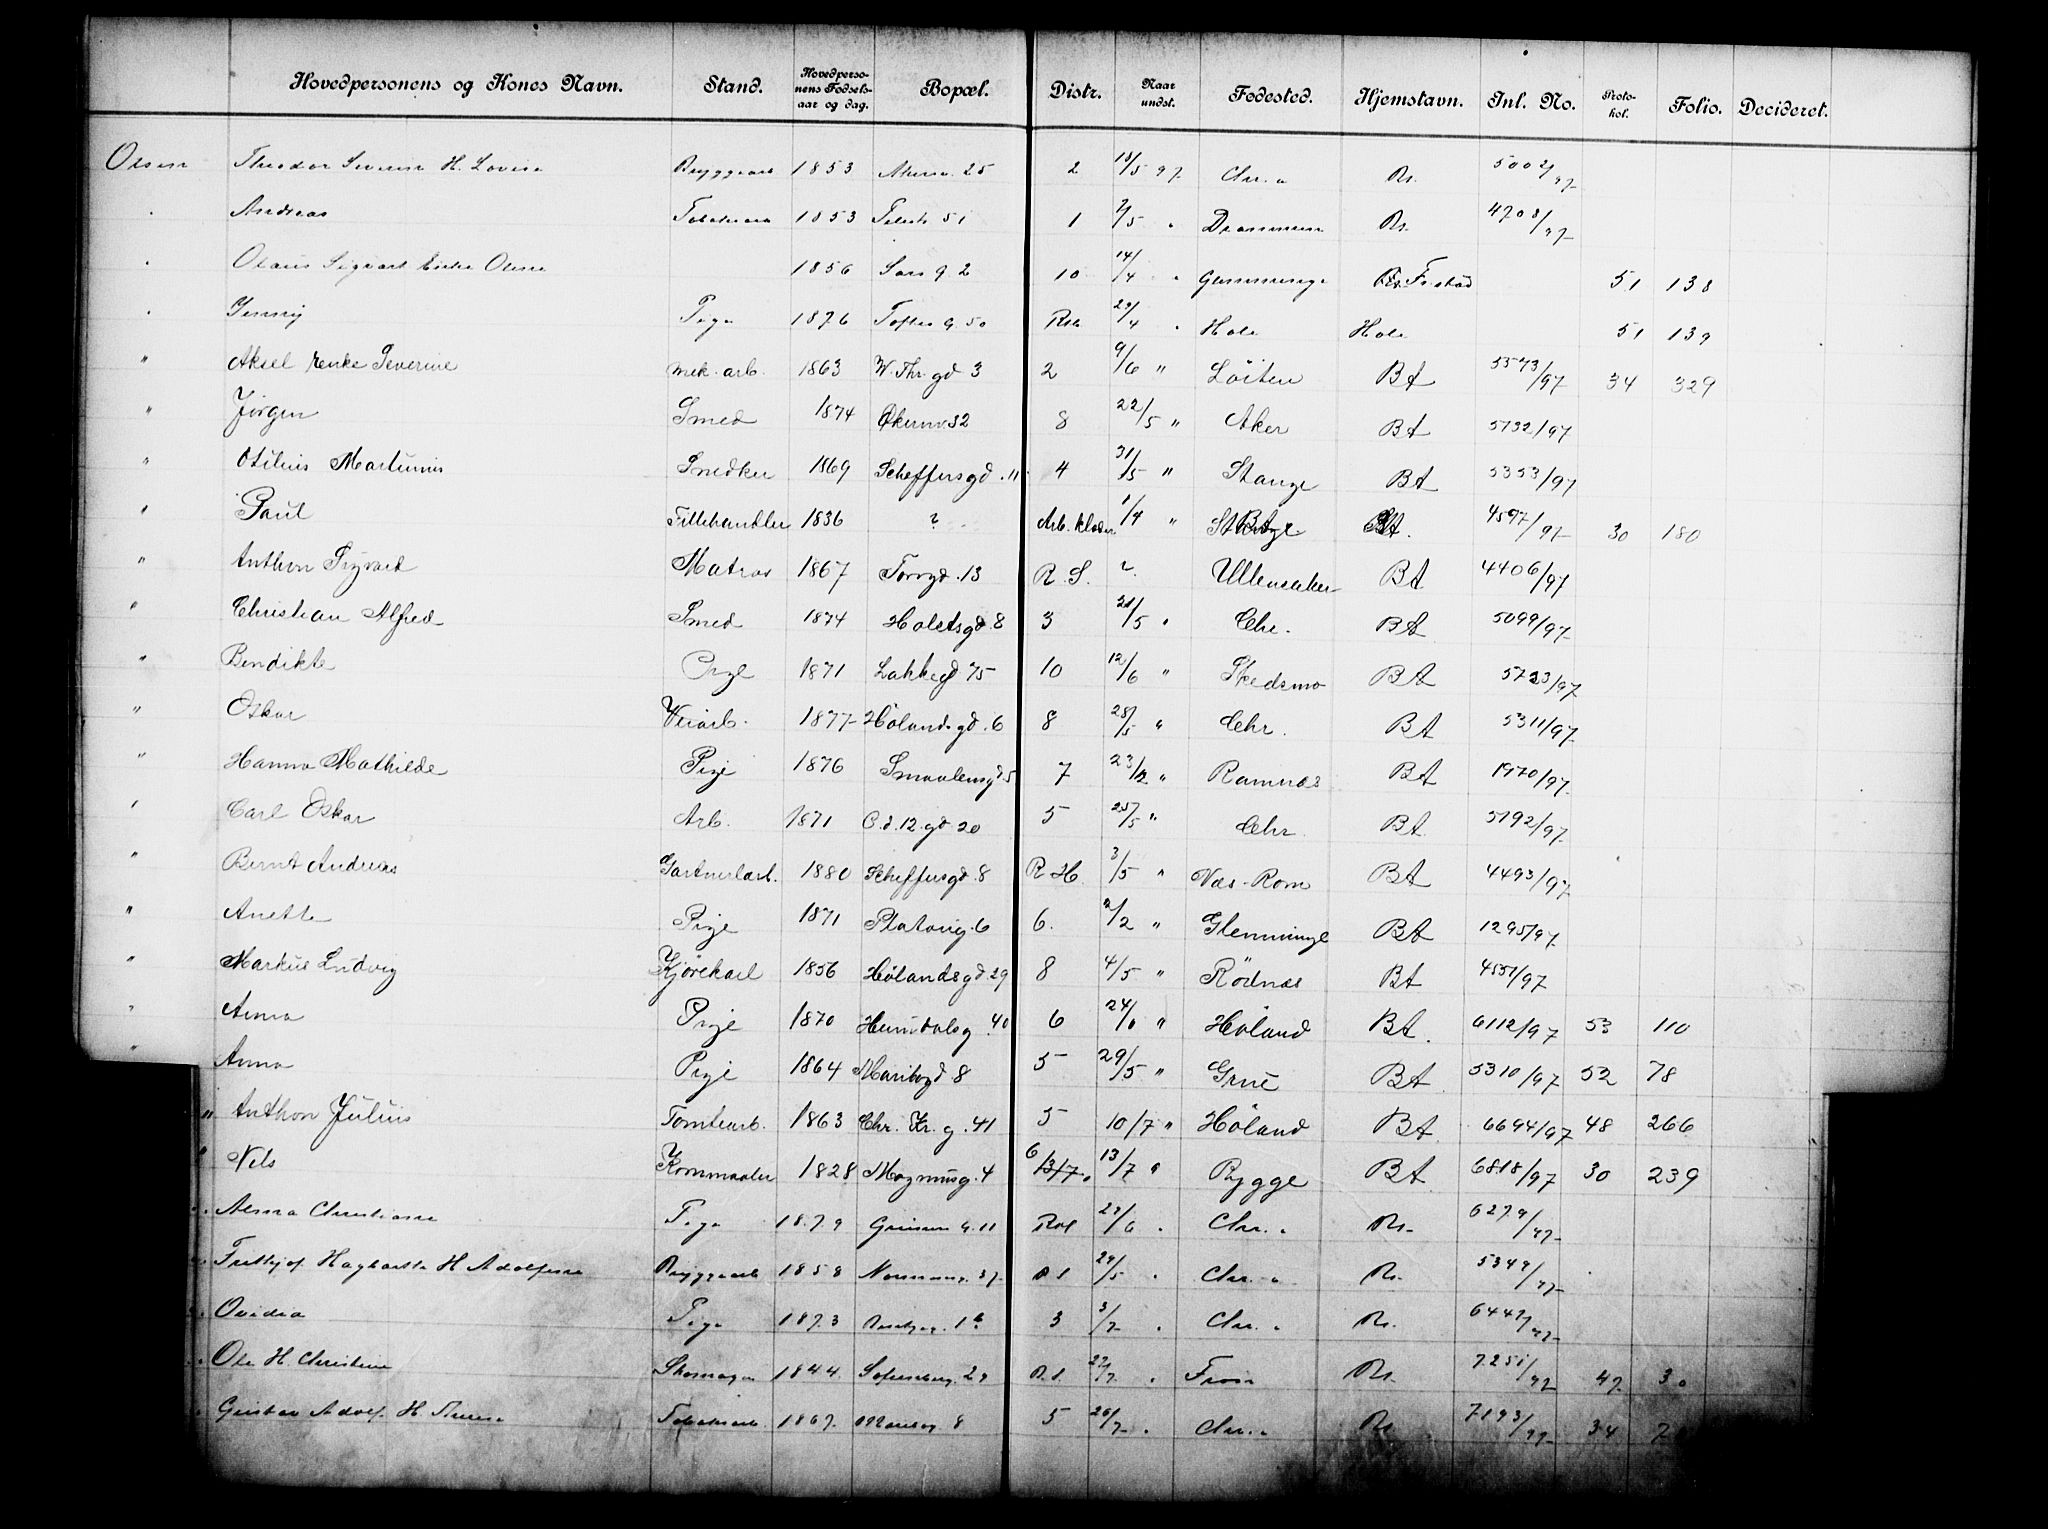 Hovedpersonens og Kones Navn. Stand. Hovedpersonens Fødselsaar og dag. Bopæl. Distr. Naar undst. Fødested. Hjemstavn. Inl. No. Protokol. Folio. Decideret.
Olsen Theodor Severin H. Lovise Bryggearb 1853 25 2 18/5 97 Chr.a Bt. 5002/97
" Andreas 1853 51 1 2/5 " Drammen Bt. 4708/97
" Olaus Sigvart Enke Oline 1856 Sars g. 2 10 14/4 " Fr.stad 51 138
" Jenny Pige 1876 Toftes G. 50 29/4 " Hole Hole 51 139
" Aksel Enke Severine mek. arb. 1863 W. Thr. gd 3 2 9/6 " Löiten BA 5573/97 34 329
" Jørgen Smed 1874 Økernv 32 8 22/5 " Aker BA 5132/97
" Otilius Martinius Snedker 1869 Scheffersgd. 11 4 31/5 " Stange BA 5353/97
" Paul Fillehandler 1836 ? 1/4 " 4597/97 30 180
" Anthon Sigvart Matros 1867 Torvgd. 13 R. S. Ullensaker BA 4406/97
" Christian Alfred Smed 1874 Holstsgd. 8 3 21/5 " Chr. BA 5099/97
" Bendikte Pige 1871 Lakkegd 75 10 12/6 " Skedsmo BA 5723/97
" Oskar Veiarb. 1877 Hölandsgd. 6 8 28/5 " Chr. BA 5311/97
" Hanna Mathilde Pige 1876 Smaalensgd 5 7 23/2 " Ramnæs BA 1970/97
" Carl Oskar Arb. 1871 C. d. 12. gd 20 5 25/5 " Chr. BA 5192/97
" Bernt Andreas Gartnerlærl. 1880 Scheffersgd. 8 R H. 3/5 " BA 4493/97
" Anette Pige 1871 Platoug. 6 6. 2/2 " Glemminge BA 1295/97
" Markus Ludvig Kjørekarl 1856 Hølandsgd. 29 8 4/5 " Rödnæs BA 4551/97
" Anna Pige 1870 Heimdalsg. 40 6 24/6 " Høland BA. 6112/97 53 110
" Anna Pige 1864 Maribogd 8 5 29/5 " Grue BA 5310/97 52 78
" Anthon Julius Tomtearb. 1863 Chr. Kr. g. 41 5 10/7 " Höland BA 6694/97 48 266
" Nils Kornmaaler 1828 Magnusg. 4 6 13/7 " Rygge BA 6818/97 30 239
" Alma Christiane Pige 1879 G. 11 29/6 " Chr.a Bt. 6279/97
" Fritthjof H. Bryggearb 1858 37 R S 29/5 " Chr.a Bt. 5349/97
" Ovidia Pige 1873 3 3/7 " Chr.a Bt. 6447/97
" Ole H. Christine Skomager 1844 Sofienberg. 29 R. S. 27/7 " Bt. 7251/97 47 30
" Gustav Adolf H. 1867 8 5 26/7 " Chr.a Bt. 7193/97 34